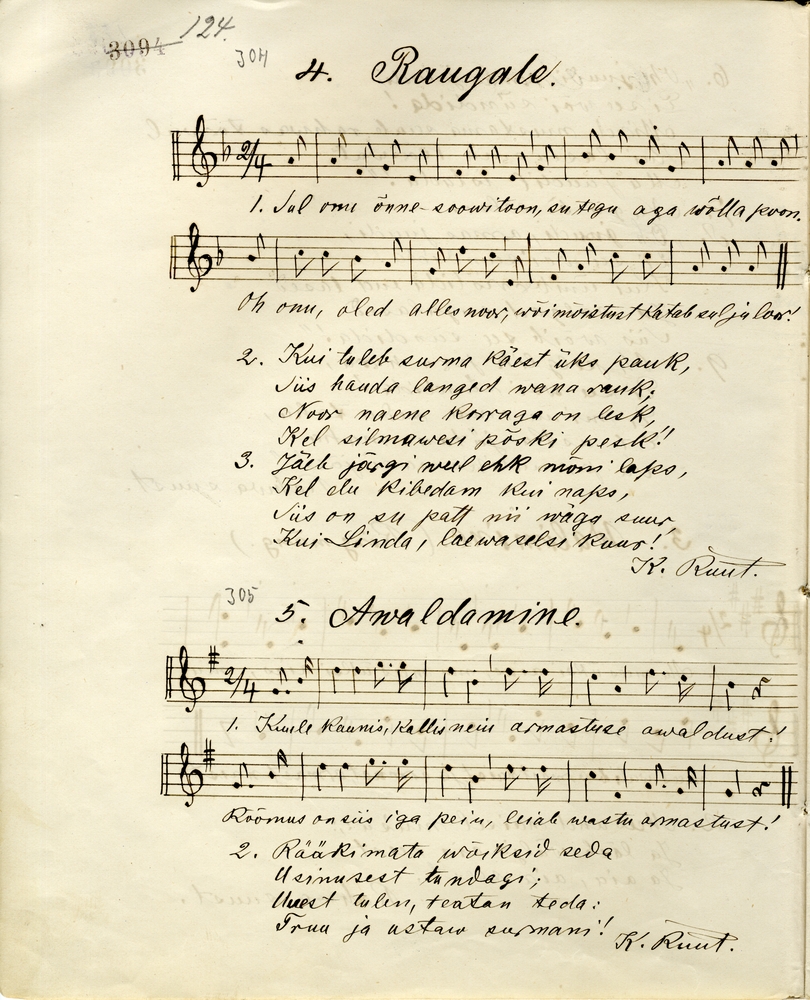 3094 124.
304
4. Raugale.
2/4
1. Sul onu õnne-soowitoon, su tegu aga wõlla poon.
Oh onu, oled alles noor, wõi mõistust katab sul ju loor!
2. Kui tuleb surma käest üks pauk,
Siis hauda langed wana rauk;
Noor naene korraga on lesk,
Kel silmawesi põski pesk!!
3. Jääb järgi weel ehk mõni laps,
Kel elu kibedam kui naps,
Siis on su patt nii wäga suur,
Kui Linda, laewaselsi kuur!
K. Ruut.
305
5. Awaldamine.
2/4
1. Kuule kaunis, kallis neiu armastuse awaldust!
Rõõmus on siis iga peiu, leiab wastu armastust!
2. Rääkimata wõiksid seda
Usinusest tundagi;
Uuest tulen, teatan teda:
Truu ja ustaw surmani!
K. Ruut.